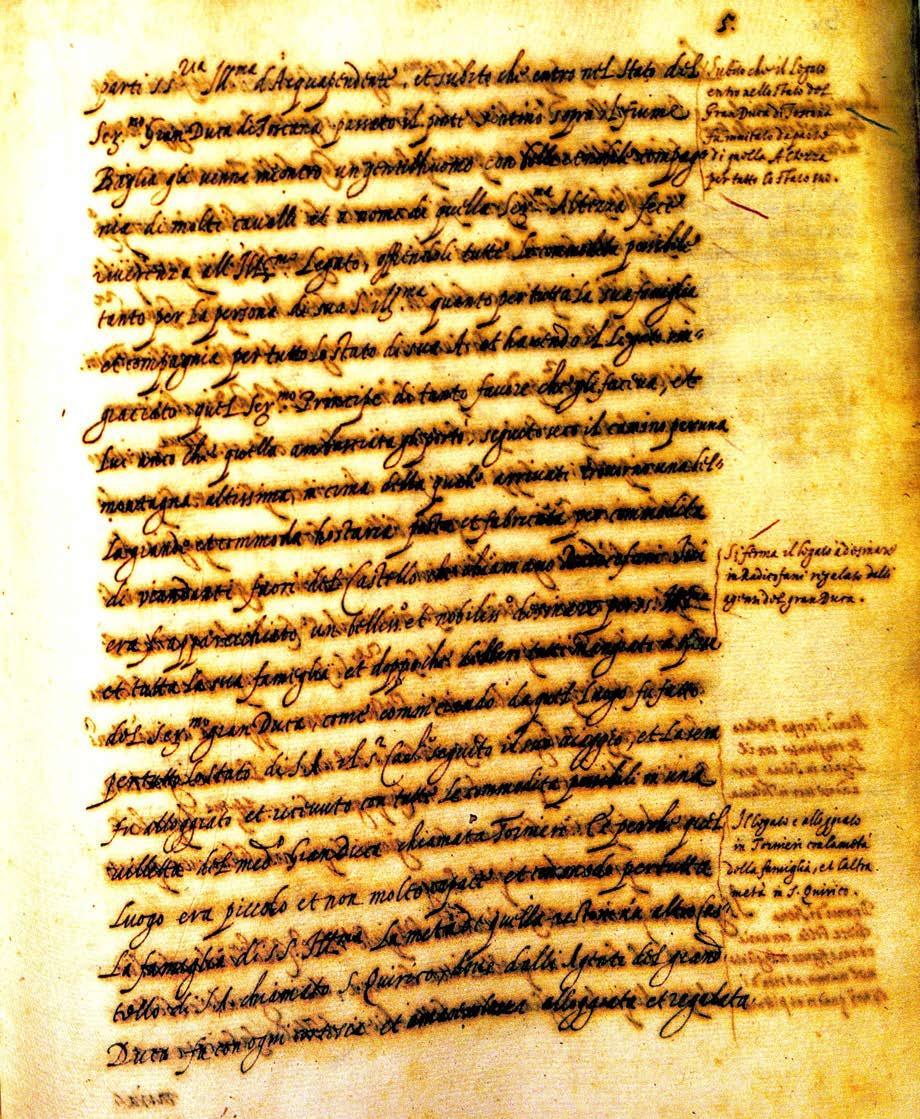 5.
parti SS.ria Ill.ma d'Acquapendente, et subito che entrò nel stato del
Ser.mo Gran Duca di Toscana passato il ponte sopra il fiume
gli venne incontro un gentilhuomo con compag
nia di molti cavalli et a nome di quella Ser.ma Altezza fece
riverenza all'Ill.mo Legato, offrendoli tutte le commodità possibile
tanto per la persona di sua S. Ill.ma quanto per tutta la sua famiglia
et compagnia per tutto lo stato di sua A. et havendo il Legato rin=
gratiato quel Ser.mo Principe di tanto favore che gli faceva, et
lui anco che quella ambasciata gli portò, seguitò seco il camino per una
montagna altissima, in cima della quale arrivati trovorno una bel=
la grande et commoda hostaria posta et fabricata per commodità
di viandanti fuori del Castello che chiamano Radicofani. Ivi
era apparecchiato un belliss.o et nobiliss.o desinare per S.
et tutta la sua famiglia, et doppo che hebbero tutti mangiato a spese
del Ser.mo Gran Duca, come cominciando da quel luogo fu fatto
per tutto lo stato di S.A. il S.r Card.le seguitò il suo viaggio, et la sera
fu alloggiato et ricevuto con tutte le commodità possibili in una
villetta del med.o Gran Duca chiamata Tornieri. Et perche quel
luogo era piccolo et non molto capace et commodo per tutta
la famiglia di SS. Ill.ma la metà di quella restò in altro Cas=
tello di S.A. chiamato S. Quirico, dove dalli Agenti del gran
Duca fu con ogni cortesia et amorevolezza alloggiata et regalata.
Subito che il Legato
entrò nello stato del
Gran Duca di Toscana
fu invitato da parte
di quella Altezza
per tutto lo stato suo.
Si ferma il legato à desinare
in Radicofani regalato dalli
agenti del gran Duca.
Il legato è alloggiato
in Tornieri con la metà
della famiglia, et l'altra
metà in S. Quirico.